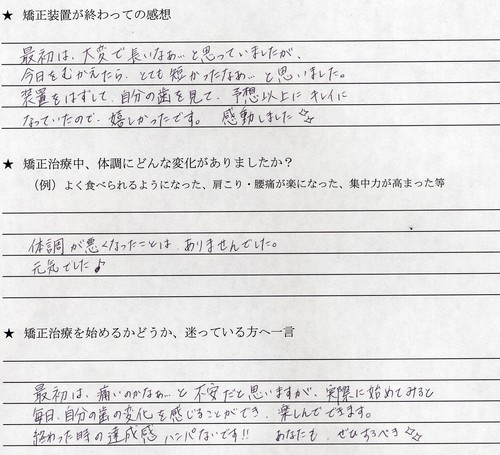 ★ 矯正装置が終わっての感想
最初は、大変で長いなぁ…と思っていましたが、
今日をむかえたら、とても短かったなぁ…と思いました。
装置をはずして、自分の歯を見て、予想以上にキレイに
なっていたので、嬉しかったです。 感動しました☆☆
★ 矯正治療中、体調にどんな変化がありましたか？
（例）よく食べられるようになった、肩こり・腰痛が楽になった、集中力が高まった等
体調が悪くなったことは、ありませんでした。
元気でした♪
★ 矯正治療を始めるかどうか、迷っている方へ一言
最初は、痛いのかなぁ…と不安だと思いますが、実際に始めてみると
毎日、自分の歯の変化を感じることができ、楽しんでできます。
終わった時の達成感ハンパないです!! あなたも、ぜひするべき☆☆